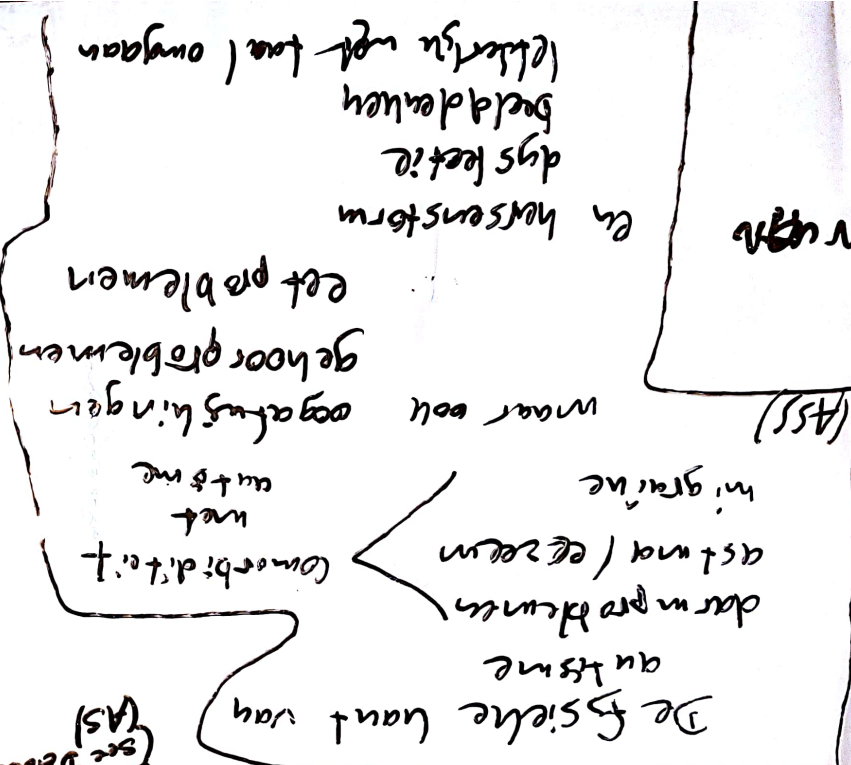 De fysieke kant van
autisme
darmproblemen
astma / eczeem
migraine
Comorbiditeit
met
autisme
(AS)
(ASS)
maar ook oogafwijkingen
gehoorproblemen
eet problemen
en hersenstorm
dyslectie
beelddenken
letterlijk met taal omgaan